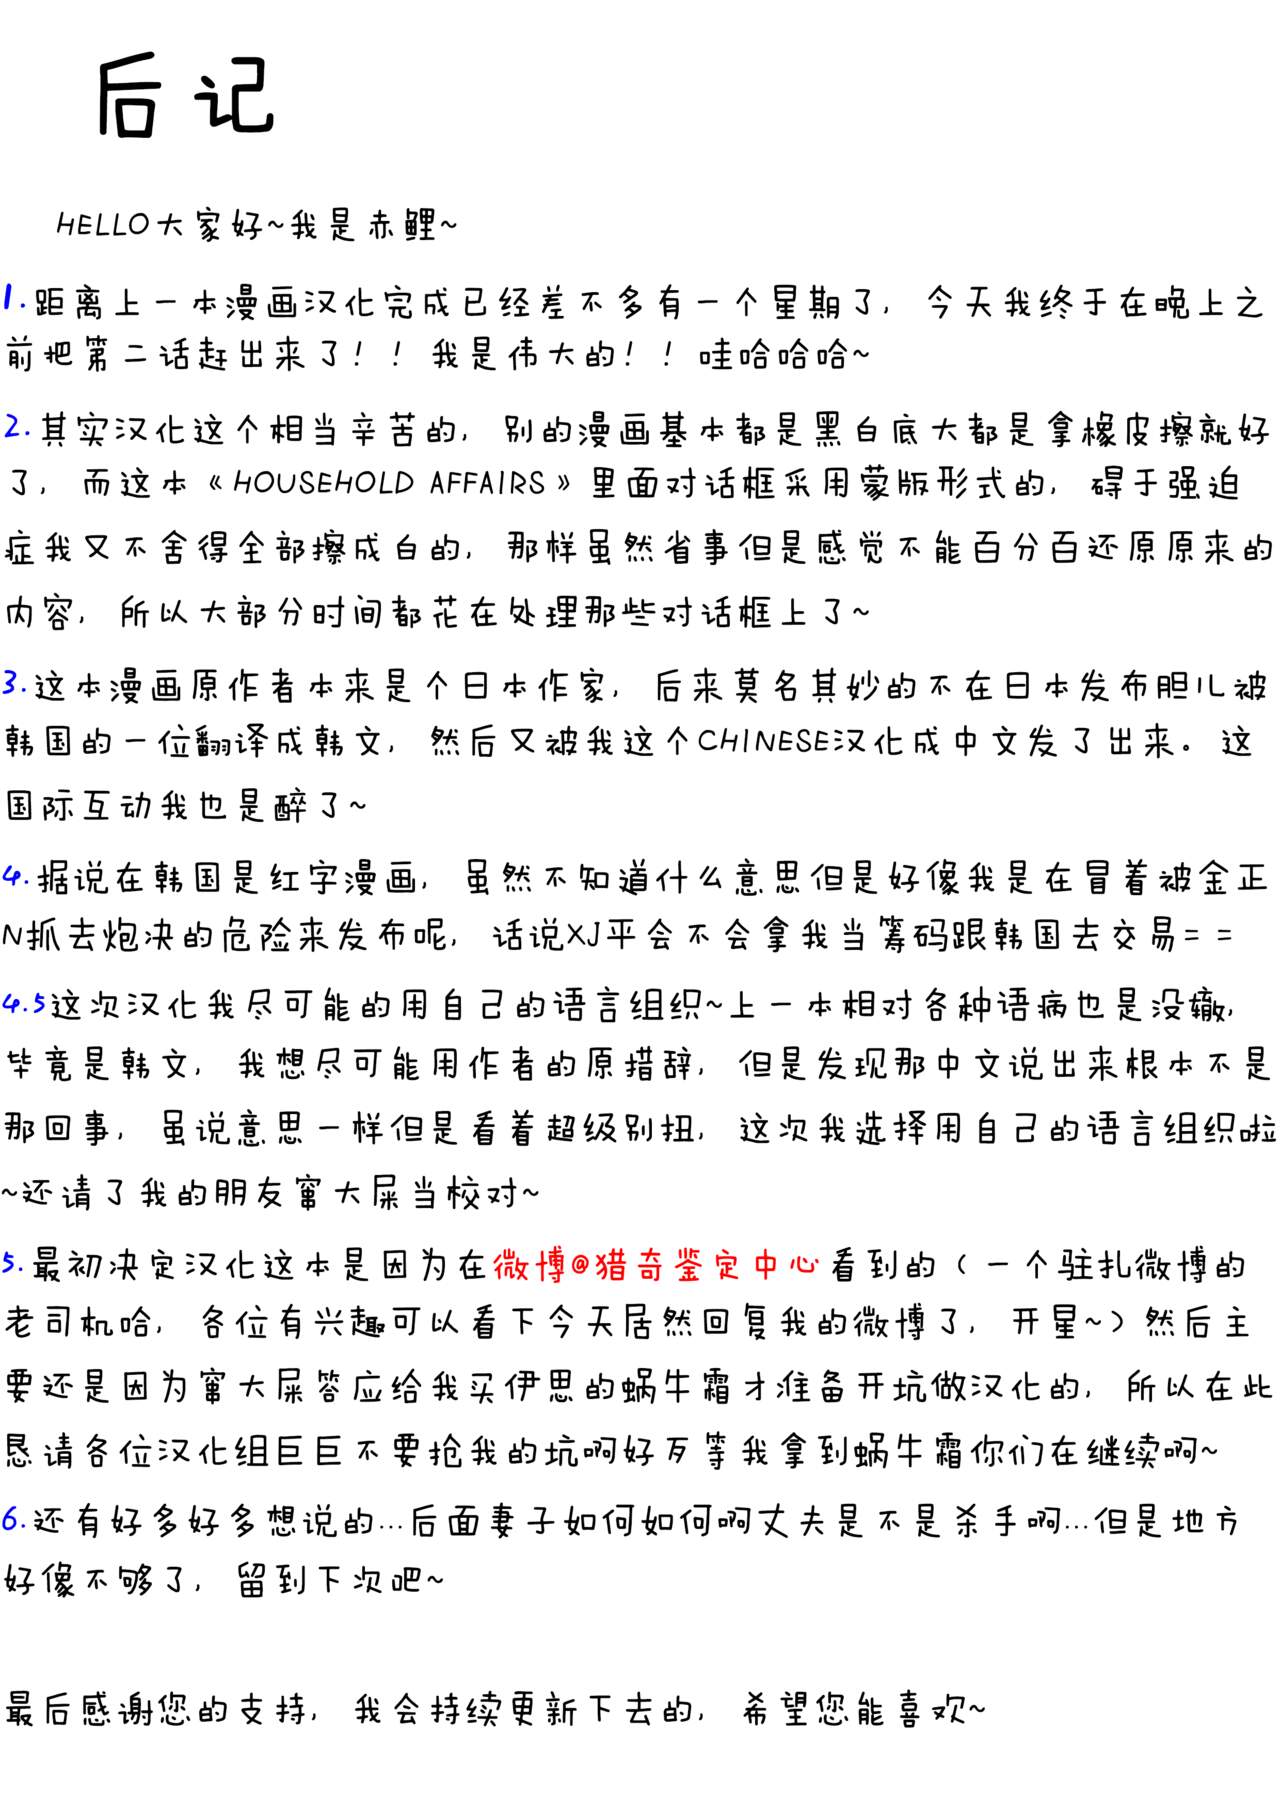 后记
HELLO大家好~我是赤鲤~
1.距离上一本漫画汉化完成已经差不多有一个星期了，今天我终于在晚上之
前把第二话赶出来了！！我是伟大的！！哇哈哈哈~
2.其实汉化这个相当辛苦的，别的漫画基本都是黑白底大都是拿橡皮擦就好
了，而这本《HOUSEHOLD AFFAIRS》里面对话框采用蒙版形式的，碍于强迫
症我又不舍得全部擦成白的，那样虽然省事但是感觉不能百分百还原原来的
内容，所以大部分时间都花在处理那些对话框上了~
3.这本漫画原作者本来是个日本作家，后来莫名其妙的不在日本发布胆儿被
韩国的一位翻译成韩文，然后又被我这个CHINESE汉化成中文发了出来。这
国际互动我也是醉了~
4.据说在韩国是红字漫画，虽然不知道什么意思但是好像我是在冒着被金正
N抓去炮决的危险来发布呢，话说XJ平会不会拿我当筹码跟韩国去交易= =
4.5这次汉化我尽可能的用自己的语言组织~上一本相对各种语病也是没辙，
毕竟是韩文，我想尽可能用作者的原措辞，但是发现那中文说出来根本不是
那回事，虽说意思一样但是看着超级别扭，这次我选择用自己的语言组织啦
~还请了我的朋友窜大屎当校对~
5.最初决定汉化这本是因为在微博@猎奇鉴定中心看到的（一个驻扎微博的
老司机哈，各位有兴趣可以看下今天居然回复我的微博了，开星~）然后主
要还是因为窜大屎答应给我买伊思的蜗牛霜才准备开坑做汉化的，所以在此
恳请各位汉化组巨巨不要抢我的坑啊好歹等我拿到蜗牛霜你们在继续啊~
6.还有好多好多想说的...后面妻子如何如何啊丈夫是不是杀手啊...但是地方
好像不够了，留到下次吧~
最后感谢您的支持，我会持续更新下去的，希望您能喜欢~